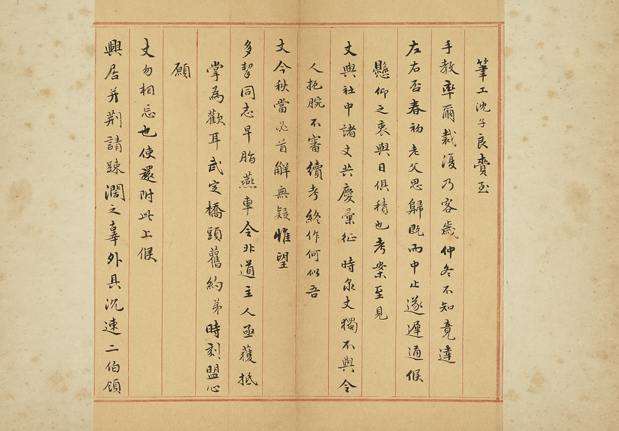 筆工沈子良賷至
手教率爾裁復乃客歲仲冬不知竟達
左右否春初老父思歸既而中止遂遲通候
懸仰之衷與日俱積也考案至見
丈與社中諸丈共慶彙征時泉丈獨不與令
人扼腕不審續考終作何似吾
丈今秋當必首解無疑惟望
多挈同志早脂燕車令北道主人亟獲抵
掌為歡耳武定橋頭舊約弟時刻盟心
願
丈勿相忘也使還附此上候
興居并荆請踈濶之辜外具沉速二伯領